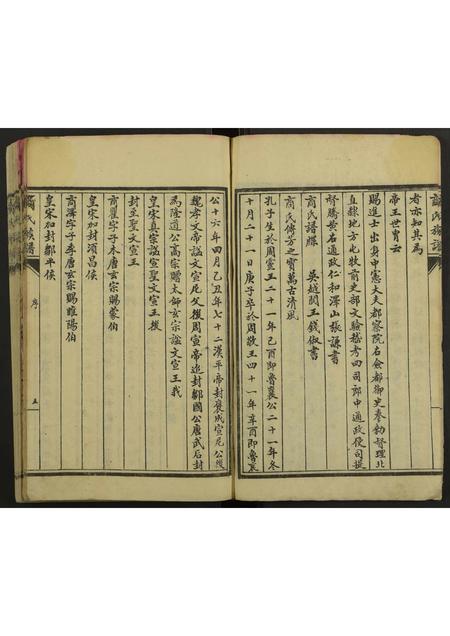 商氏族譜
者亦知其為
帝王世胄云
賜進士出身中憲大夫都察院右僉都御史奉勅督理北
直隸地方屯牧前吏部文驗稽考四司郎中通政使司提
督謄黃右通政仁和澤山張謙書
商氏譜牒　吳越閩王錢俶書
商氏傳芳之寶萬古清風
孔子生於周靈王二十一年己酉即魯襄公二十一年冬
十月二十一日庚子卒於周敬王四十一年辛酉即魯襄
公十六年四月己丑年七十二漢平帝封褒成宣尼公後
魏孝文帝謚文宣尼父後周宣帝追封鄒國公唐武后封
為隆道公高宗贈太師玄宗謚文宣王我
皇宋真宗謚宣聖文宣王後
封至聖文宣王
商瞿字子木唐玄宗賜蒙伯
皇宋加封須昌侯
商澤字子季唐玄宗賜睢陽伯
皇宋加封鄒平侯
商氏族譜
序
五